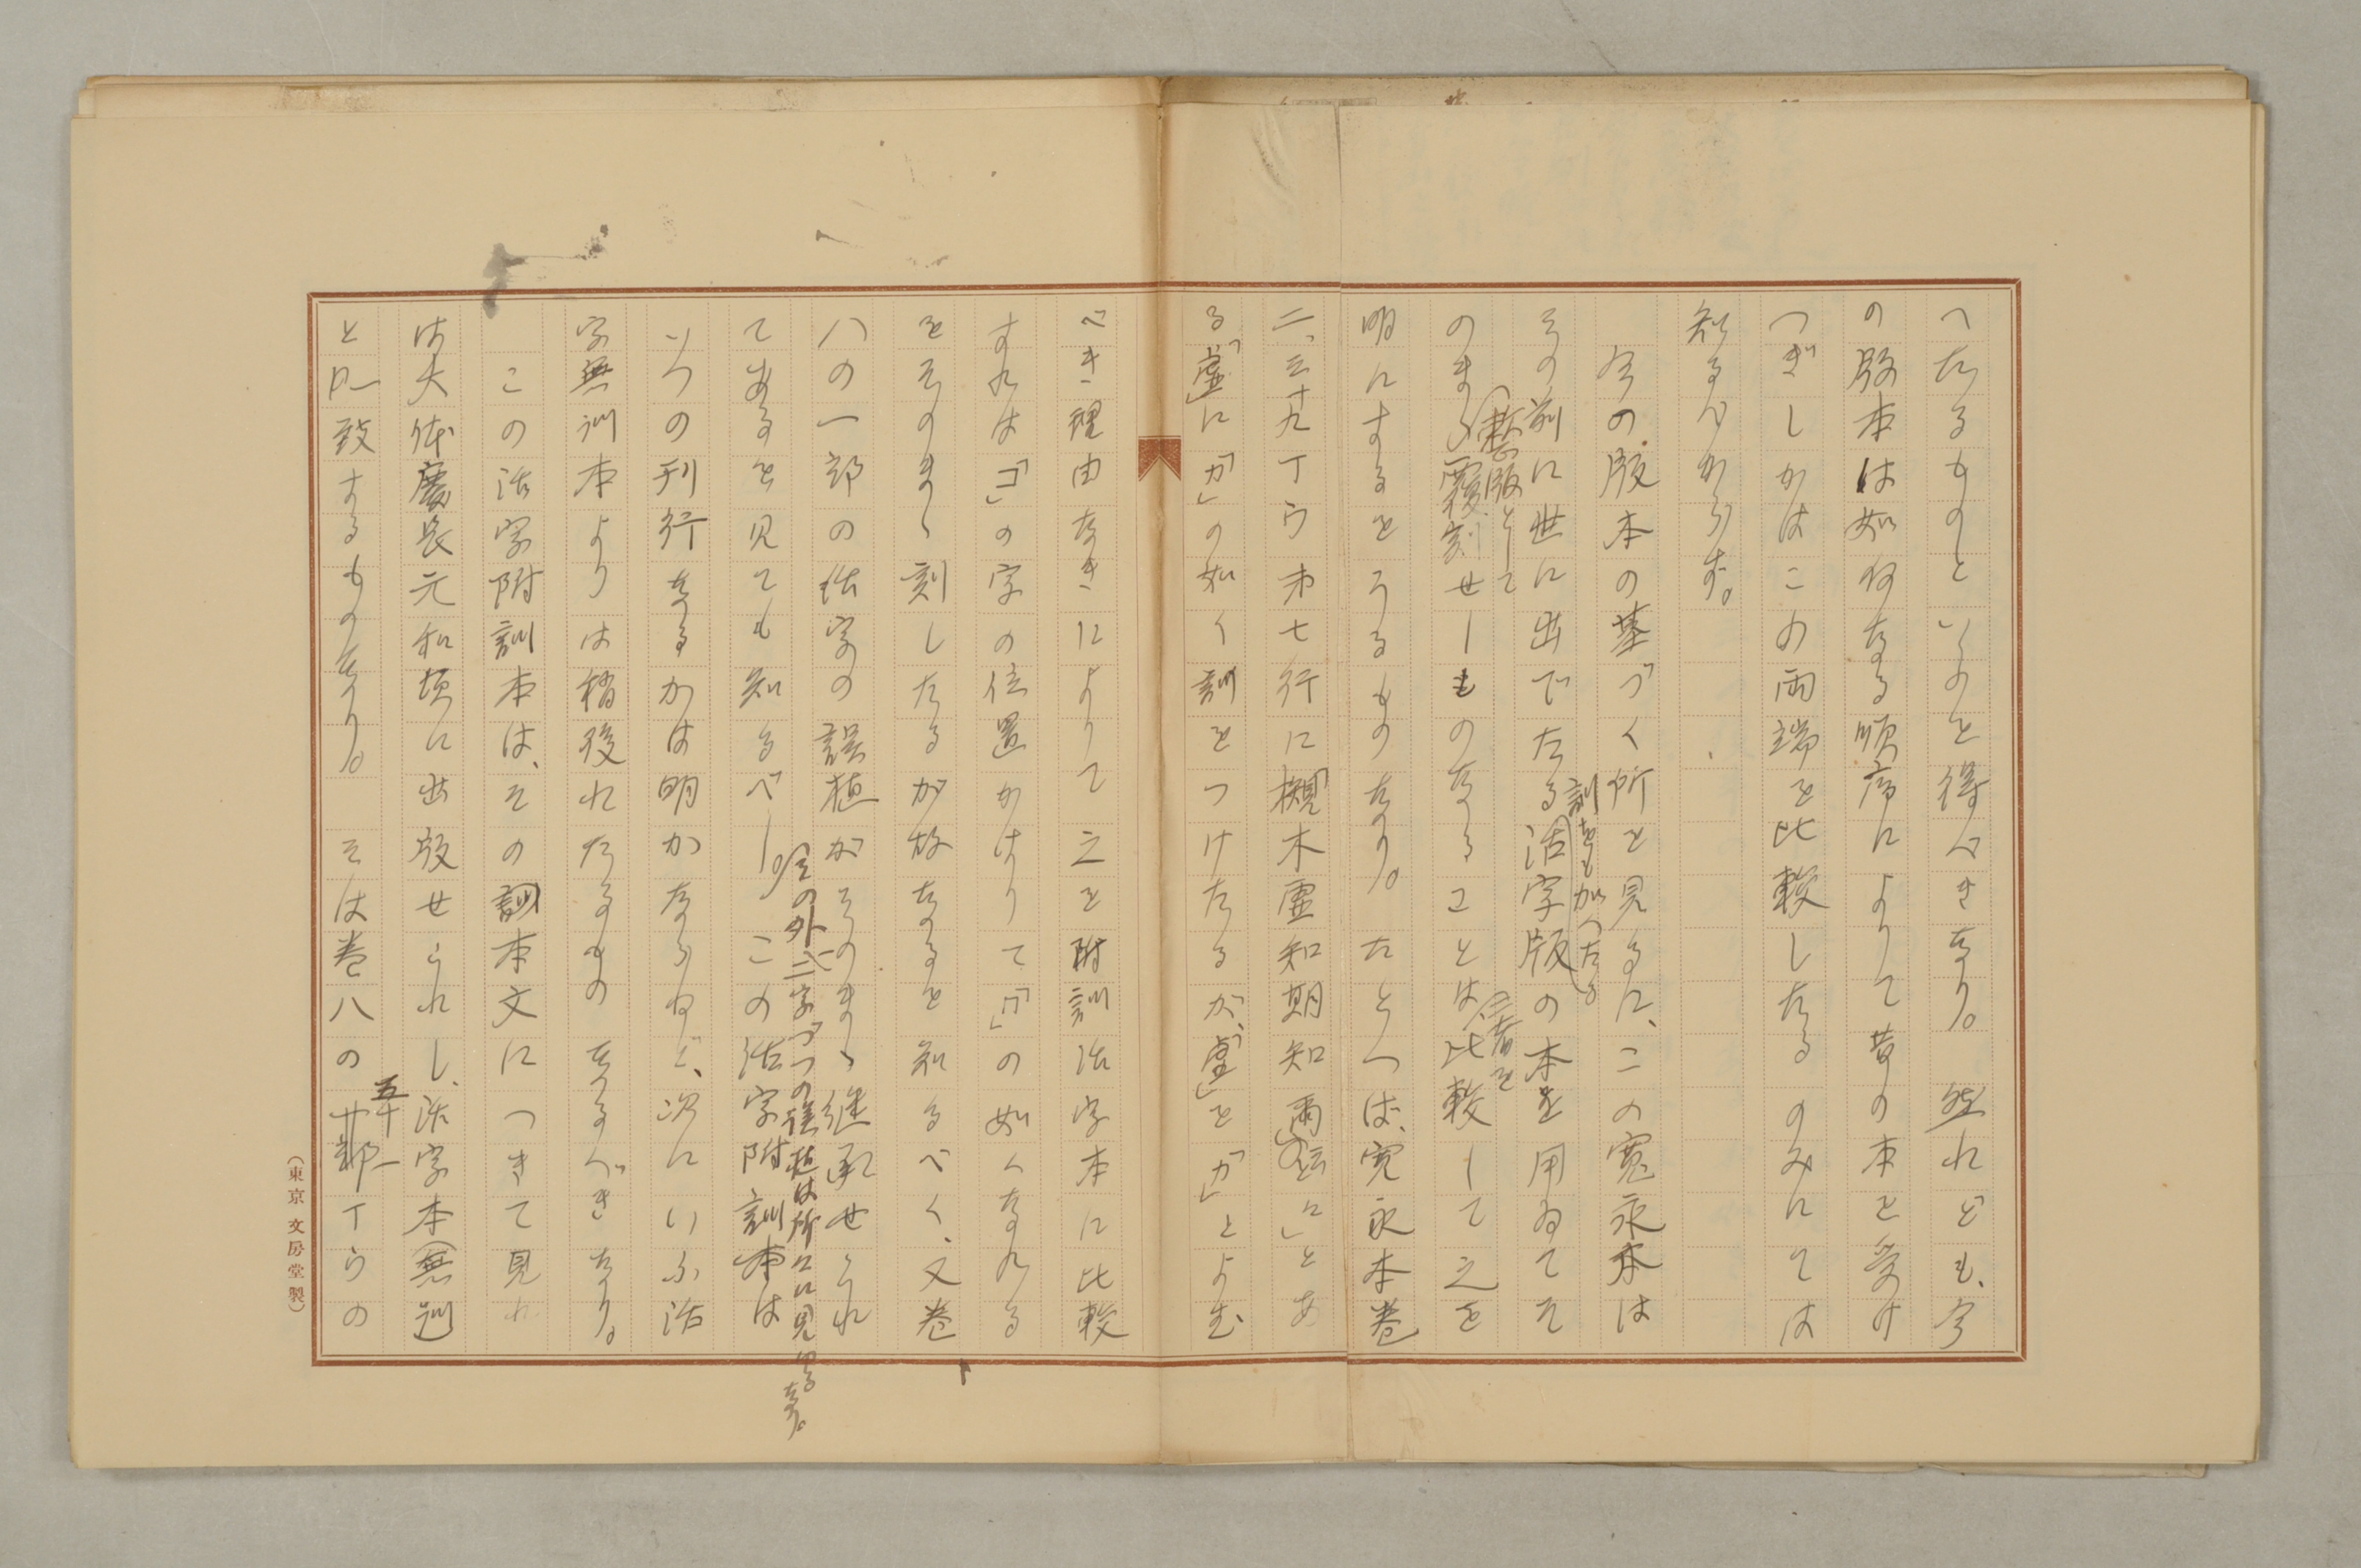 へたるものといふを得べきなり。然れども、今
の版本は如何なる順序によりて昔の本を受け
つぎしかはこの両端を比較したるのみにては
知るべからず。
今の版本の基づく所を見るに、この寛永本は
その前に世に出でたる活字版の本を用ゐてそ
訓をも加へたる
のまゝ覆刻せしものなることは比較して之を
整版として
二者を
明にするをうるものなり。たとへば、寛永本巻
二、三十九丁ウ第七行に「櫬木虚知期知爾云々」とあ
る「虚」に「カ」の如く訓をつけたるが、「虚」を「カ」とよむ
べき理由なきによりて之を附訓活字本に比較
すれば「コ」の字の位置かはりて「カ」の如くなれる
をそのまゝ刻したるが故なるを知るべく、又巻
八の一部の活字の誤植がそのまゝ継承せられ
てあるを見ても知るべし。この活字附訓本は
その外二三字づつの誤植は所々に見ゆるなり。
いつの刊行なるかは明かならねど、次にいふ活
字無訓本よりは稍後れたるものなるべきなり。
この活字附訓本は、その訓本文につきて見れ
ば大体慶長元和頃に出版せられし、活字本(無訓)
と一致するものなり。そは巻八の五十一丁ウの
(東京 文房堂製)